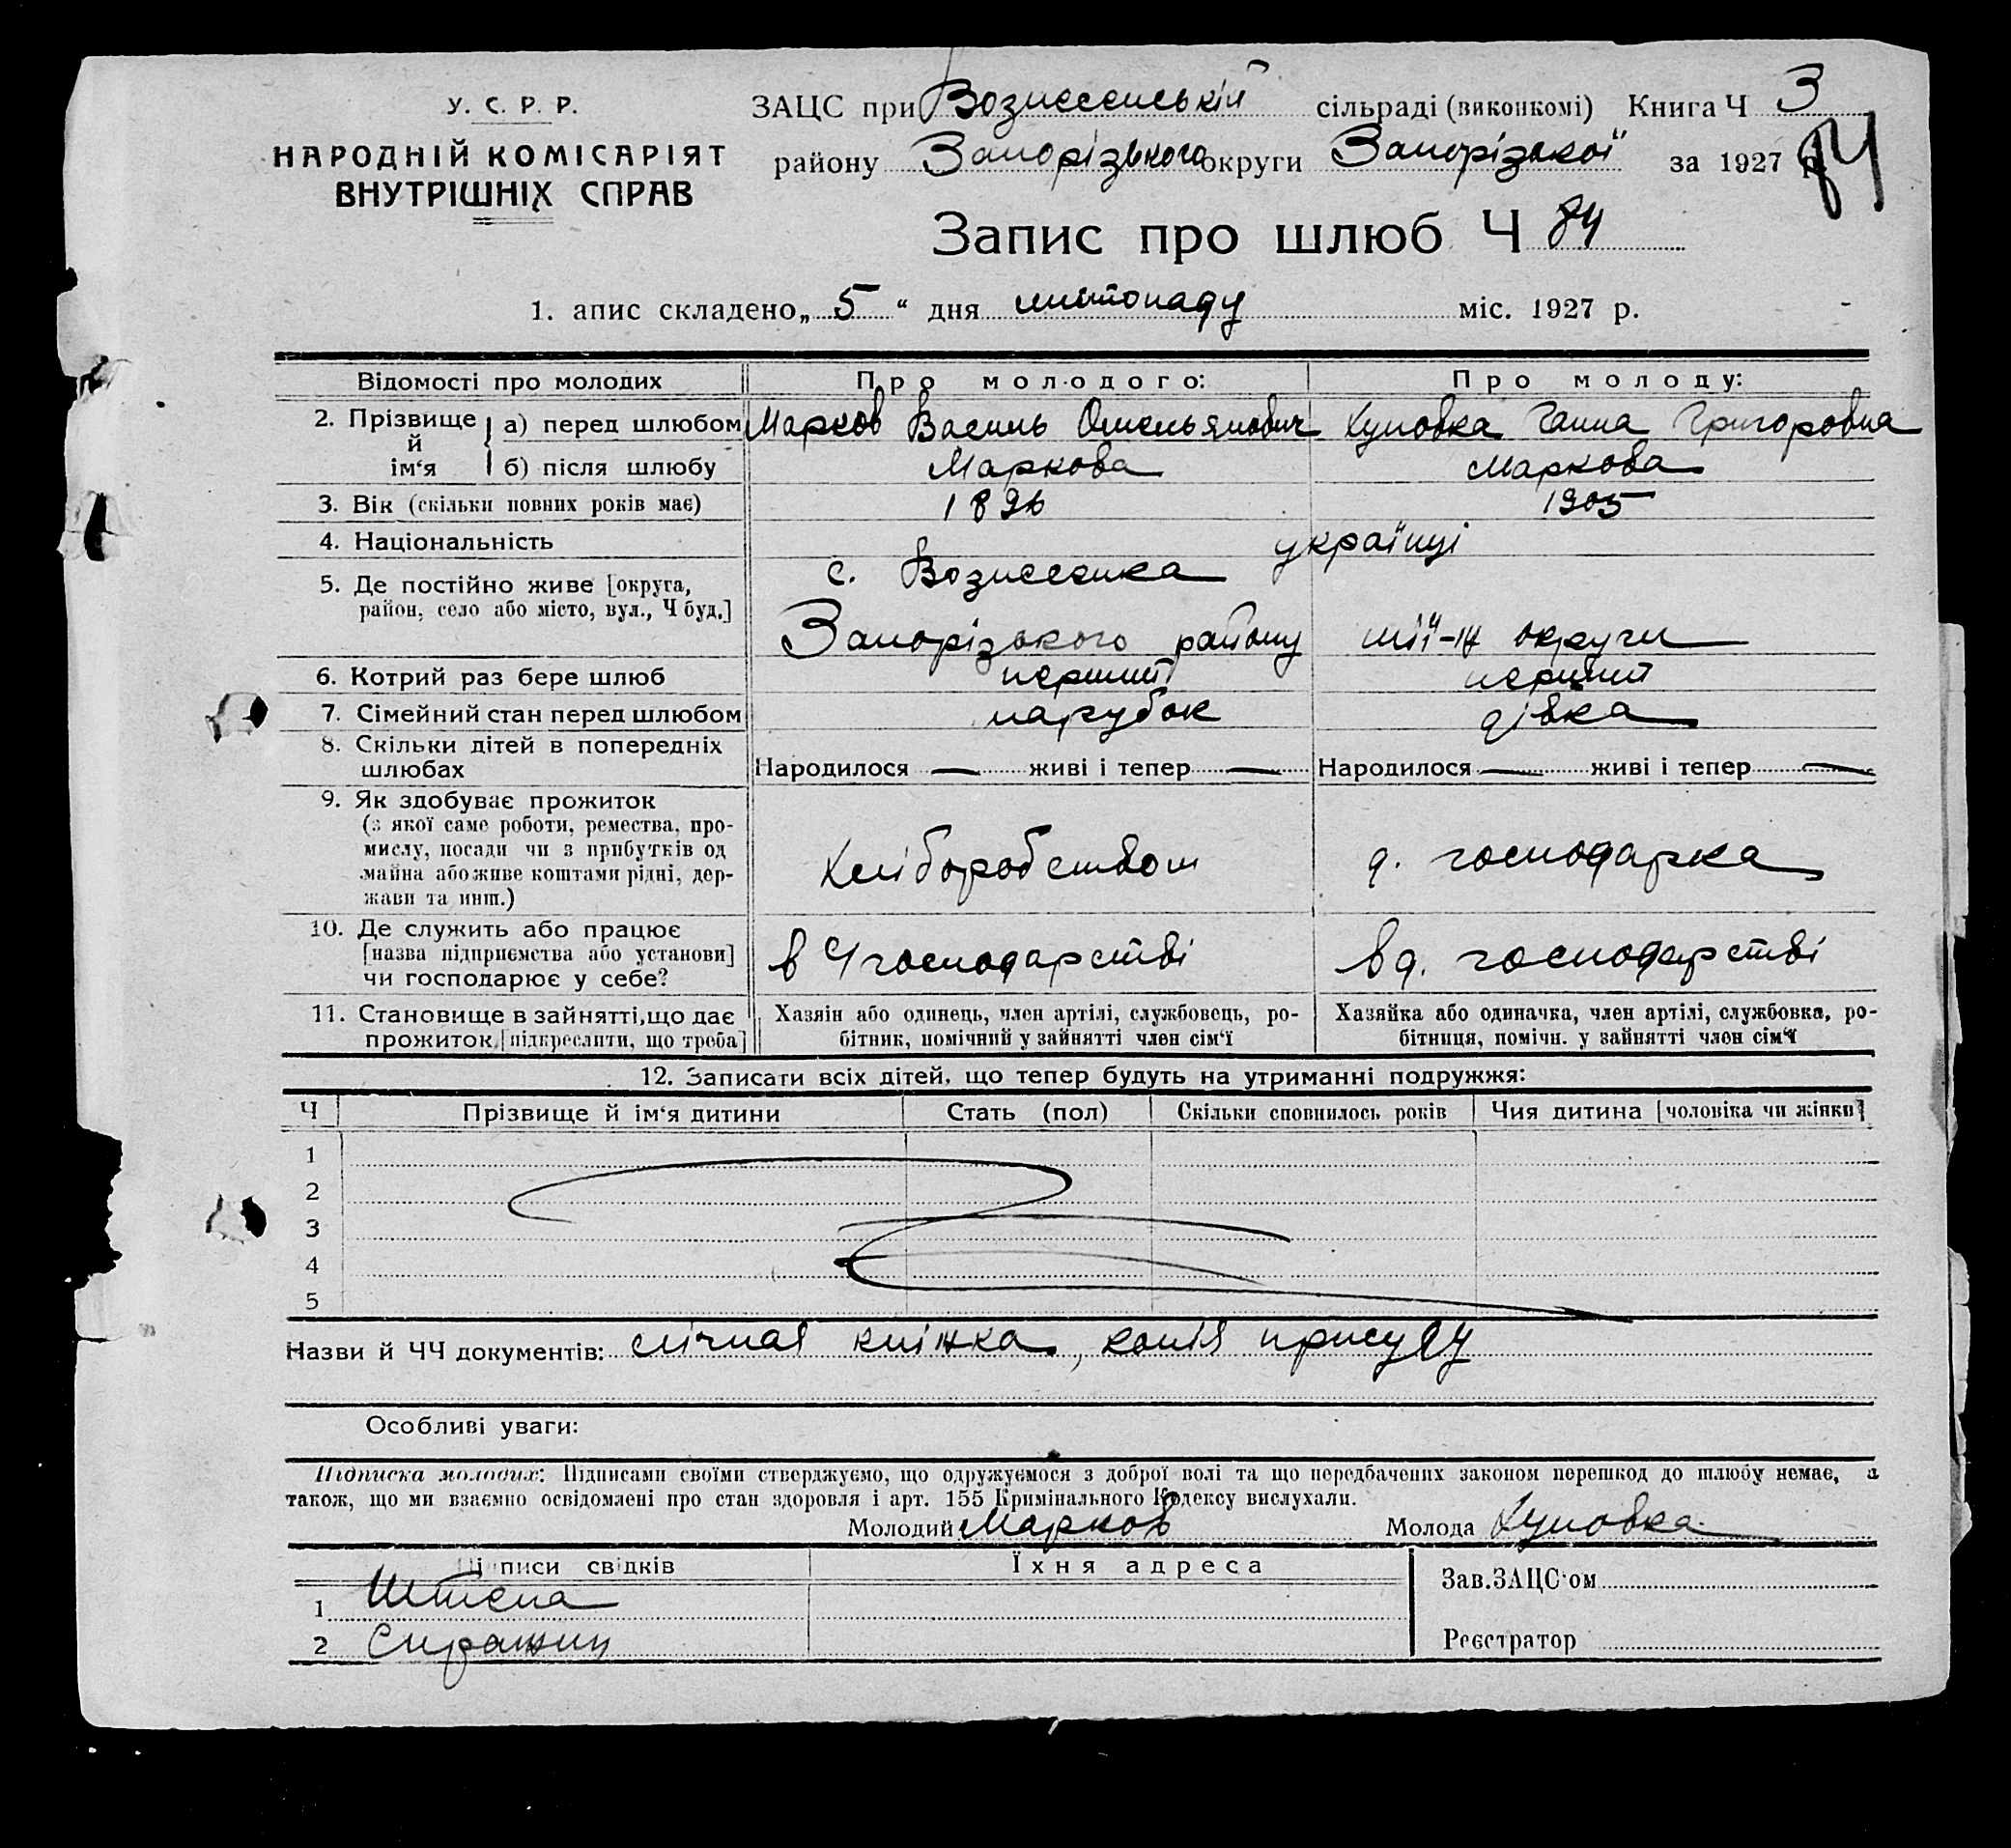 У. С. Р. Р.
НАРОДНІЙ КОМІСАРІЯТ
ВНУТРІШНІХ СПРАВ
ЗАЦС при Вознесенській сільраді (виконкомі) Книга Ч 3
району Запорізького округи Запорізької за 1927 р.
84
Запис про шлюб Ч 84
1. апис складено „ 5 “ дня листопаду міс. 1927 р.
Відомості про молодих Про молодого: Про молоду:
2. Прізвище й ім‘я а) перед шлюбом Марков Василь Омельянович Куповка Ганна Григоровна
б) після шлюбу Маркова Маркова
3. Вік (скільки повних років має) 1896 1905
4. Національність українці
5. Де постійно живе [округа, с. Вознесенка
район, село або місто, вул., Ч буд.]
Запорізького району округи
6. Котрий раз бере шлюб перший перший
7. Сімейний стан перед шлюбом парубок дівка
8. Скільки дітей в попередніх
шлюбах Народилося — живі і тепер — Народилося — живі і тепер —
9. Як здобуває прожиток
(з якої саме роботи, ремества, про-
мислу, посади чи з прибутків од
майна або живе коштами рідні, дер-
жави та инш.)
Хліборобством д. господарка
10. Де служить або працює
[назва підприємства або установи]
чи господарює у себе?
в господарстві в д. господарстві
11. Становище в зайнятті, що дає
прожиток [підкреслити, що треба]
Хазяїн або одинець, член артілі, службовець, ро-
бітник, помічний у зайнятті член сім‘ї
Хазяйка або одиначка, член артілі, службовка, ро-
бітниця, помічн. у зайнятті член сім‘ї
12. Записати всіх дітей, що тепер будуть на утриманні подружжя:
Ч Прізвище й ім‘я дитини Стать (пол) Скільки сповнилось років Чия дитина [чоловіка чи жінки]
1
2
3
4
5
Назви й ЧЧ документів: кніжка, копія присуду
Особливі уваги:
Підписка молодих: Підписами своїми стверджуємо, що одружуємося з доброї волі та що передбачених законом перешкод до шлюбу немає, а
також, що ми взаємно освідомлені про стан здоровля і арт. 155 Кримінального Кодексу вислухали.
Молодий Марков Молода Куповка
Підписи свідків Їхня адреса
Зав. ЗАЦС‘ом
1 Штепа
2
Реєстратор